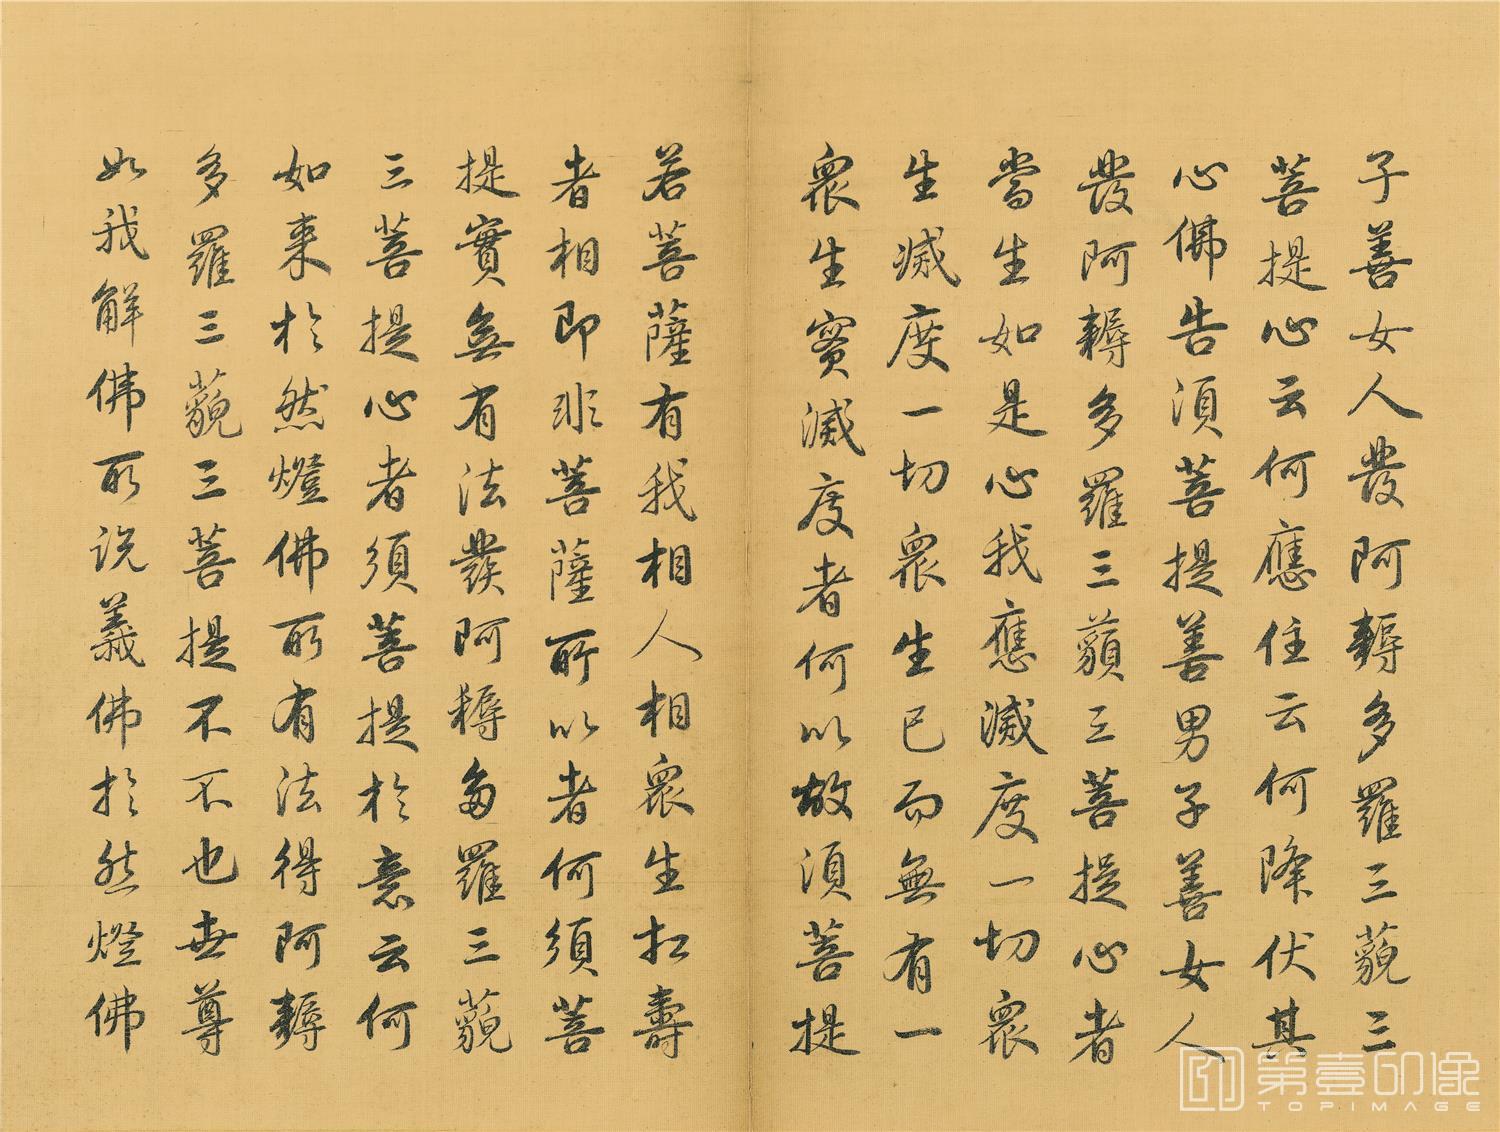 子善女人發阿耨多羅三藐三
菩提心云何應住云何降伏其
心佛告須菩提善男子善女人
發阿耨多羅三藐三菩提心者
當生如是心我應滅度一切眾
生滅度一切眾生已而無有一
眾生實滅度者何以故須菩提
若菩薩有我相人相眾生相壽
者相即非菩薩所以者何須菩
提實無有法發阿耨多羅三藐
三菩提心者須菩提於意云何
如來於然燈佛所有法得阿耨
多羅三藐三菩提不不也世尊
如我解佛所說義佛於然燈佛
第壹印像
TOPIMAGE